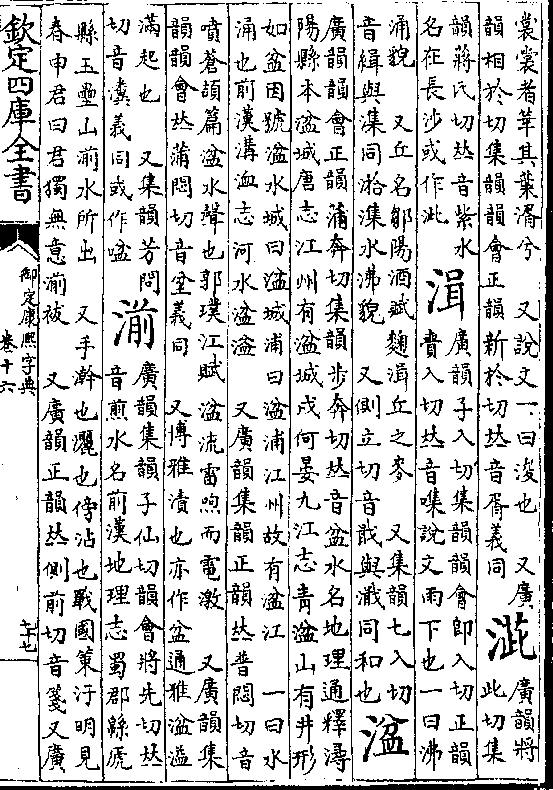 裳裳者華其葉湑兮　又說文一曰浚也　又廣
韻相於切集韻韻會正韻新於切𠀤音胥義同
廣韻將
此切集
韻蔣氏切𠀤音紫水
名在長沙或作泚
湒
廣韻子入切集韻韻會即入切正韻
賫入切𠀤音喋說文雨下也一曰沸
涌貌　又丘名鄒陽酒賦麴湒丘之麥　又集韻七入切
音緝與潗同湁潗水沸貌　又側立切音戢與濈同和也
湓
廣韻韻會正韻蒲奔切集韻步奔切𠀤音盆水名地理通釋潯
陽縣本湓城唐志江州有湓城戍何晏九江志青湓山有井形
如盆因號盆水城曰湓城浦曰湓浦江州故有湓江　一曰水
涌也前漢溝洫志河水湓溢　又廣韻集韻正韻𠀤普悶切音
噴蒼頡篇湓水聲也郭璞江賦湓流雷呴而電激　又廣韻集
韻韻會𠀤蒲悶切音坌義同　又博雅漬也亦作盆通雅湓溢
滿起也　又集韻芳問
切音瀵義同或作
湔
廣韻集韻子仙切韻會將先切𠀤
音煎水名前漢地理志蜀郡緜虒
縣玉壘山湔水所出　又手澣也灑也傍沾也戰國策汗明見
春申君曰君獨無意湔祓　又廣韻正韻𠀤側前切音箋又廣
欽定四庫全書
御定康熙字典
卷十六
二十七